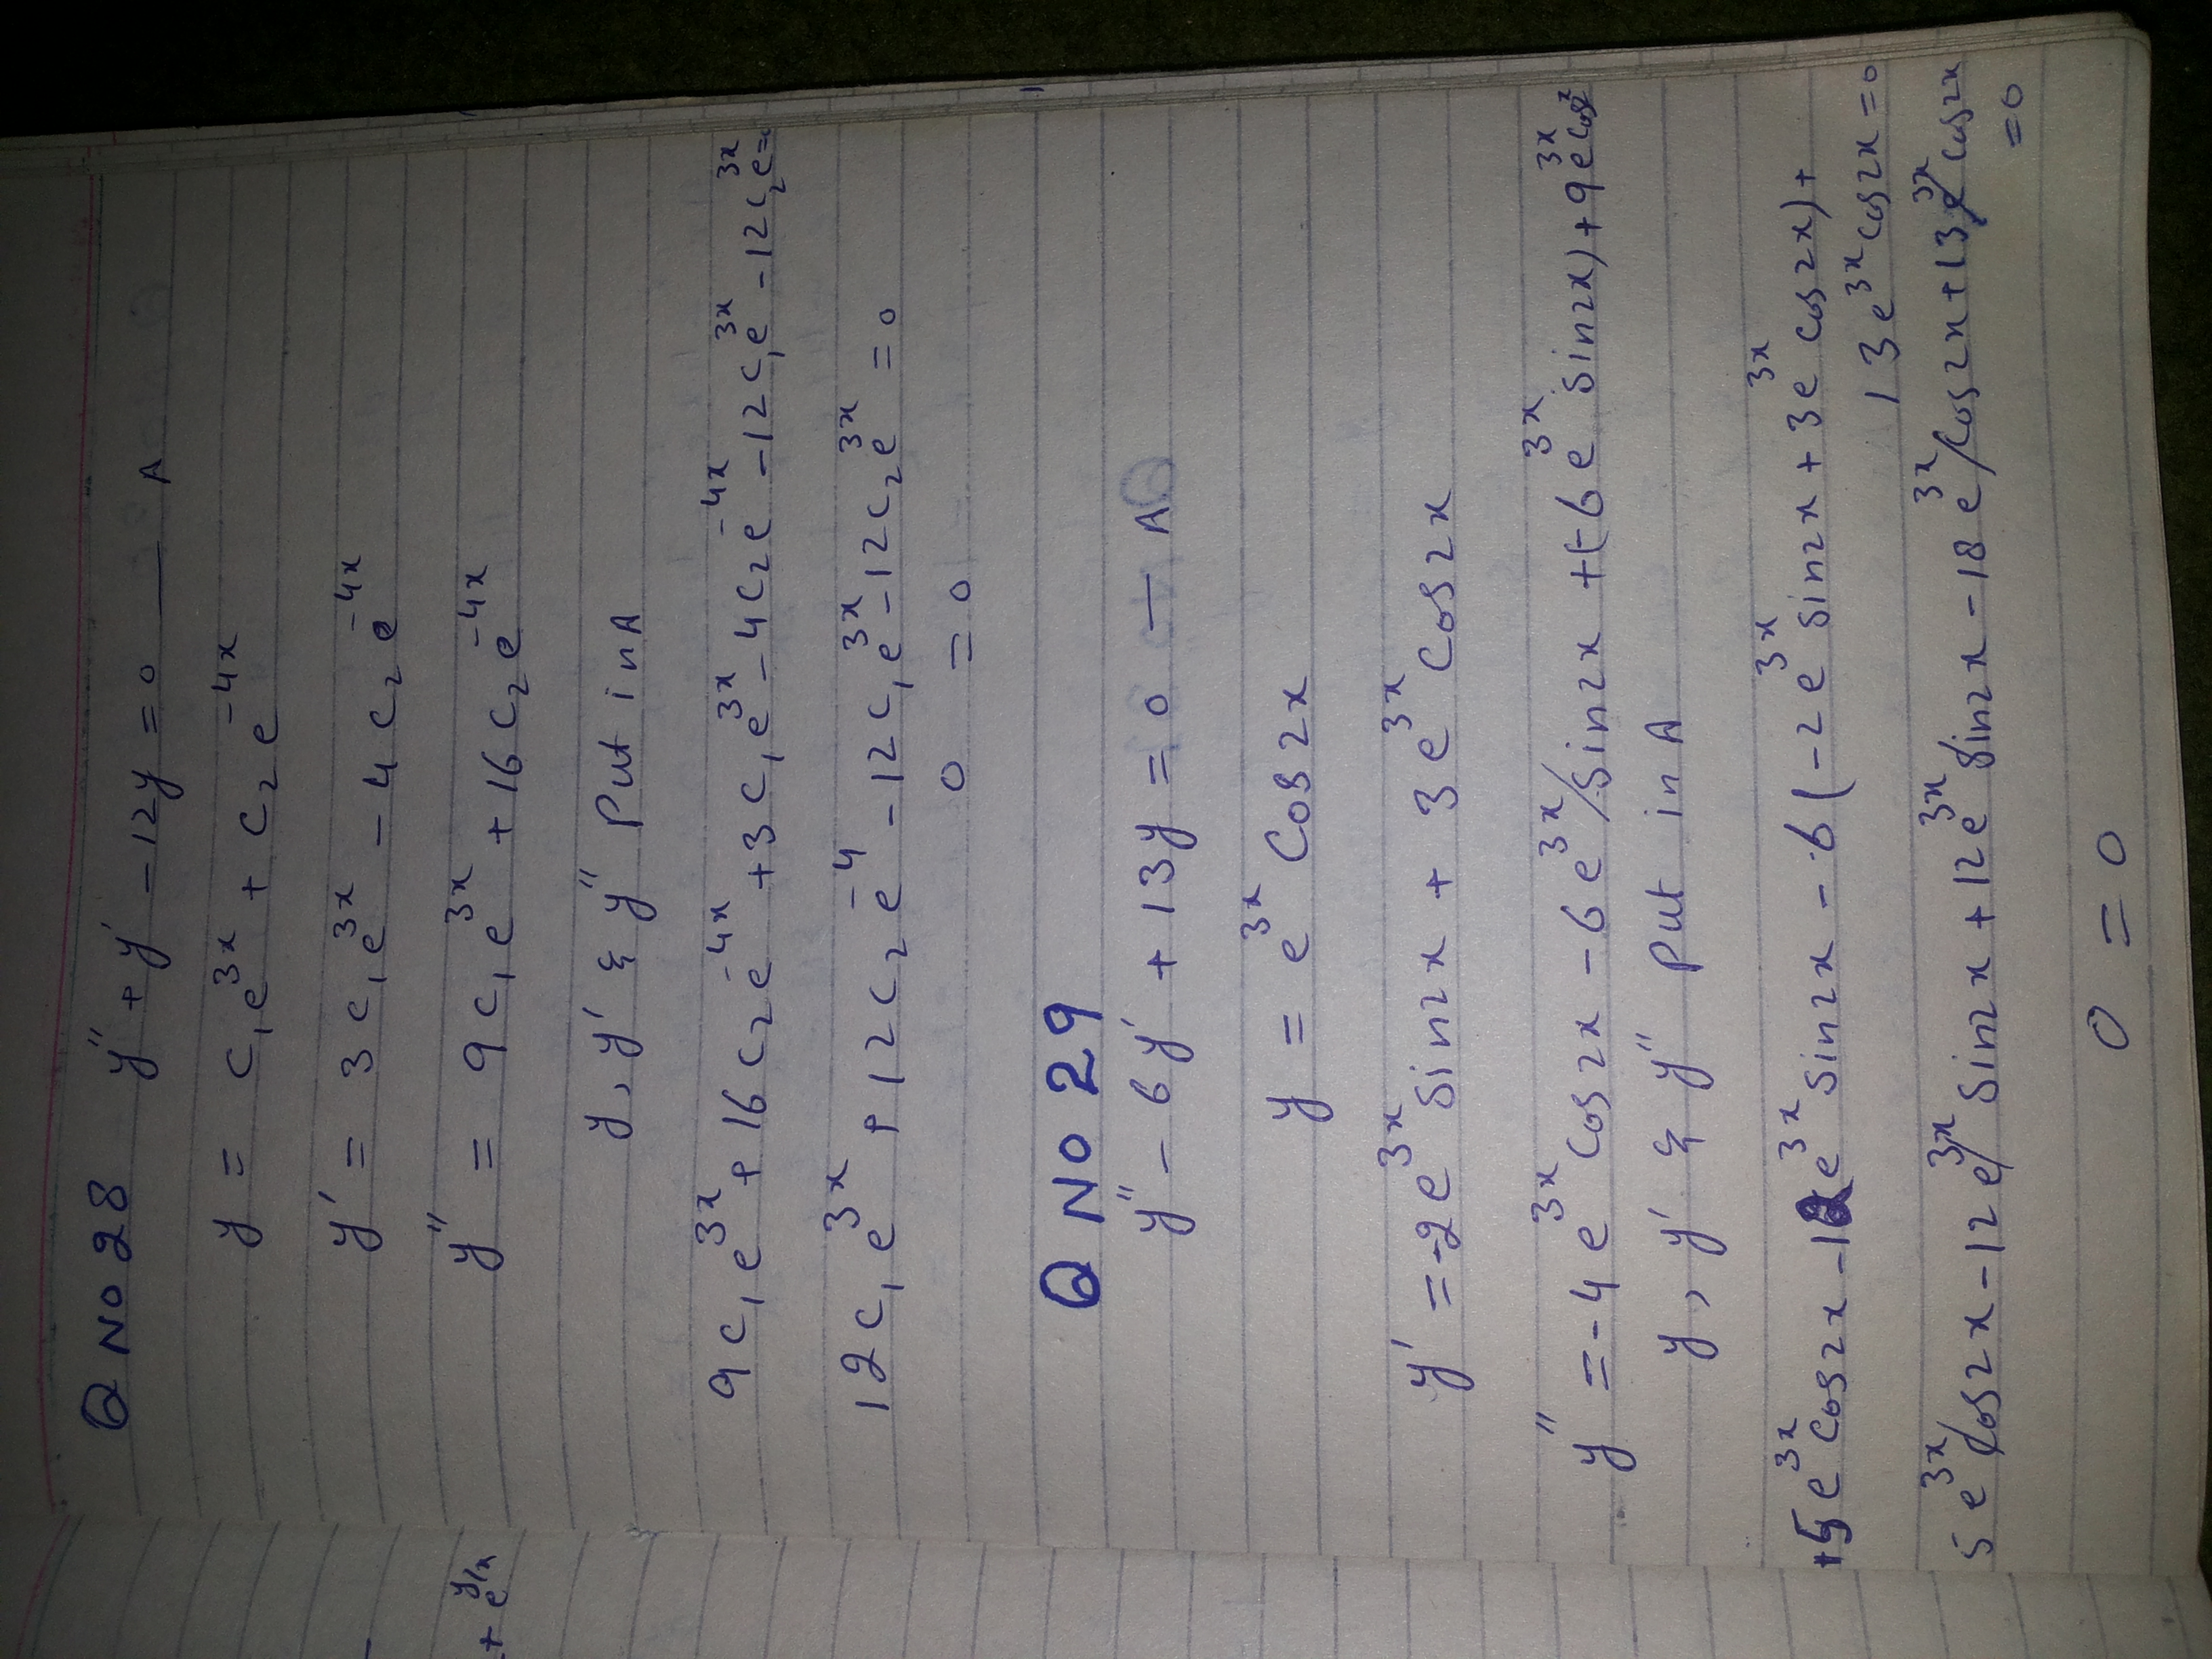 + e^{y/x}
Q No 28 y'' + y' - 12y = 0 — A
y = c₁e^{3x} + c₂e^{-4x}
y' = 3c₁e^{3x} - 4c₂e^{-4x}
y'' = 9c₁e^{3x} + 16c₂e^{-4x}
y, y' & y'' Put in A
9c₁e^{3x} + 16c₂e^{-4x} + 3c₁e^{3x} - 4c₂e^{-4x} - 12c₁e^{3x} - 12c₂e^{3x} =
12c₁e^{3x} + 12c₂e^{-4} - 12c₁e^{3x} - 12c₂e^{3x} = 0
0 = 0
Q No 29
y'' - 6y' + 13y = 0 — A
y = e^{3x} Cos2x
y' = -2e^{3x} Sin2x + 3e^{3x} Cos2x
y'' = -4e^{3x} Cos2x - 6e^{3x} Sin2x + (-6e^{3x} Sin2x) + 9e^{3x} Cos2
y, y' & y'' Put in A
+5e^{3x} Cos2x - 12e^{3x} Sin2x - 6(-2e^{3x} Sin2x + 3e^{3x} Cos2x) +
13e^{3x} Cos2x = 0
5e^{3x} Cos2x - 12e^{3x} Sin2x + 12e^{3x} Sin2x - 18e^{3x} Cos2x + 13e^{3x} Cos2x
= 0
0 = 0